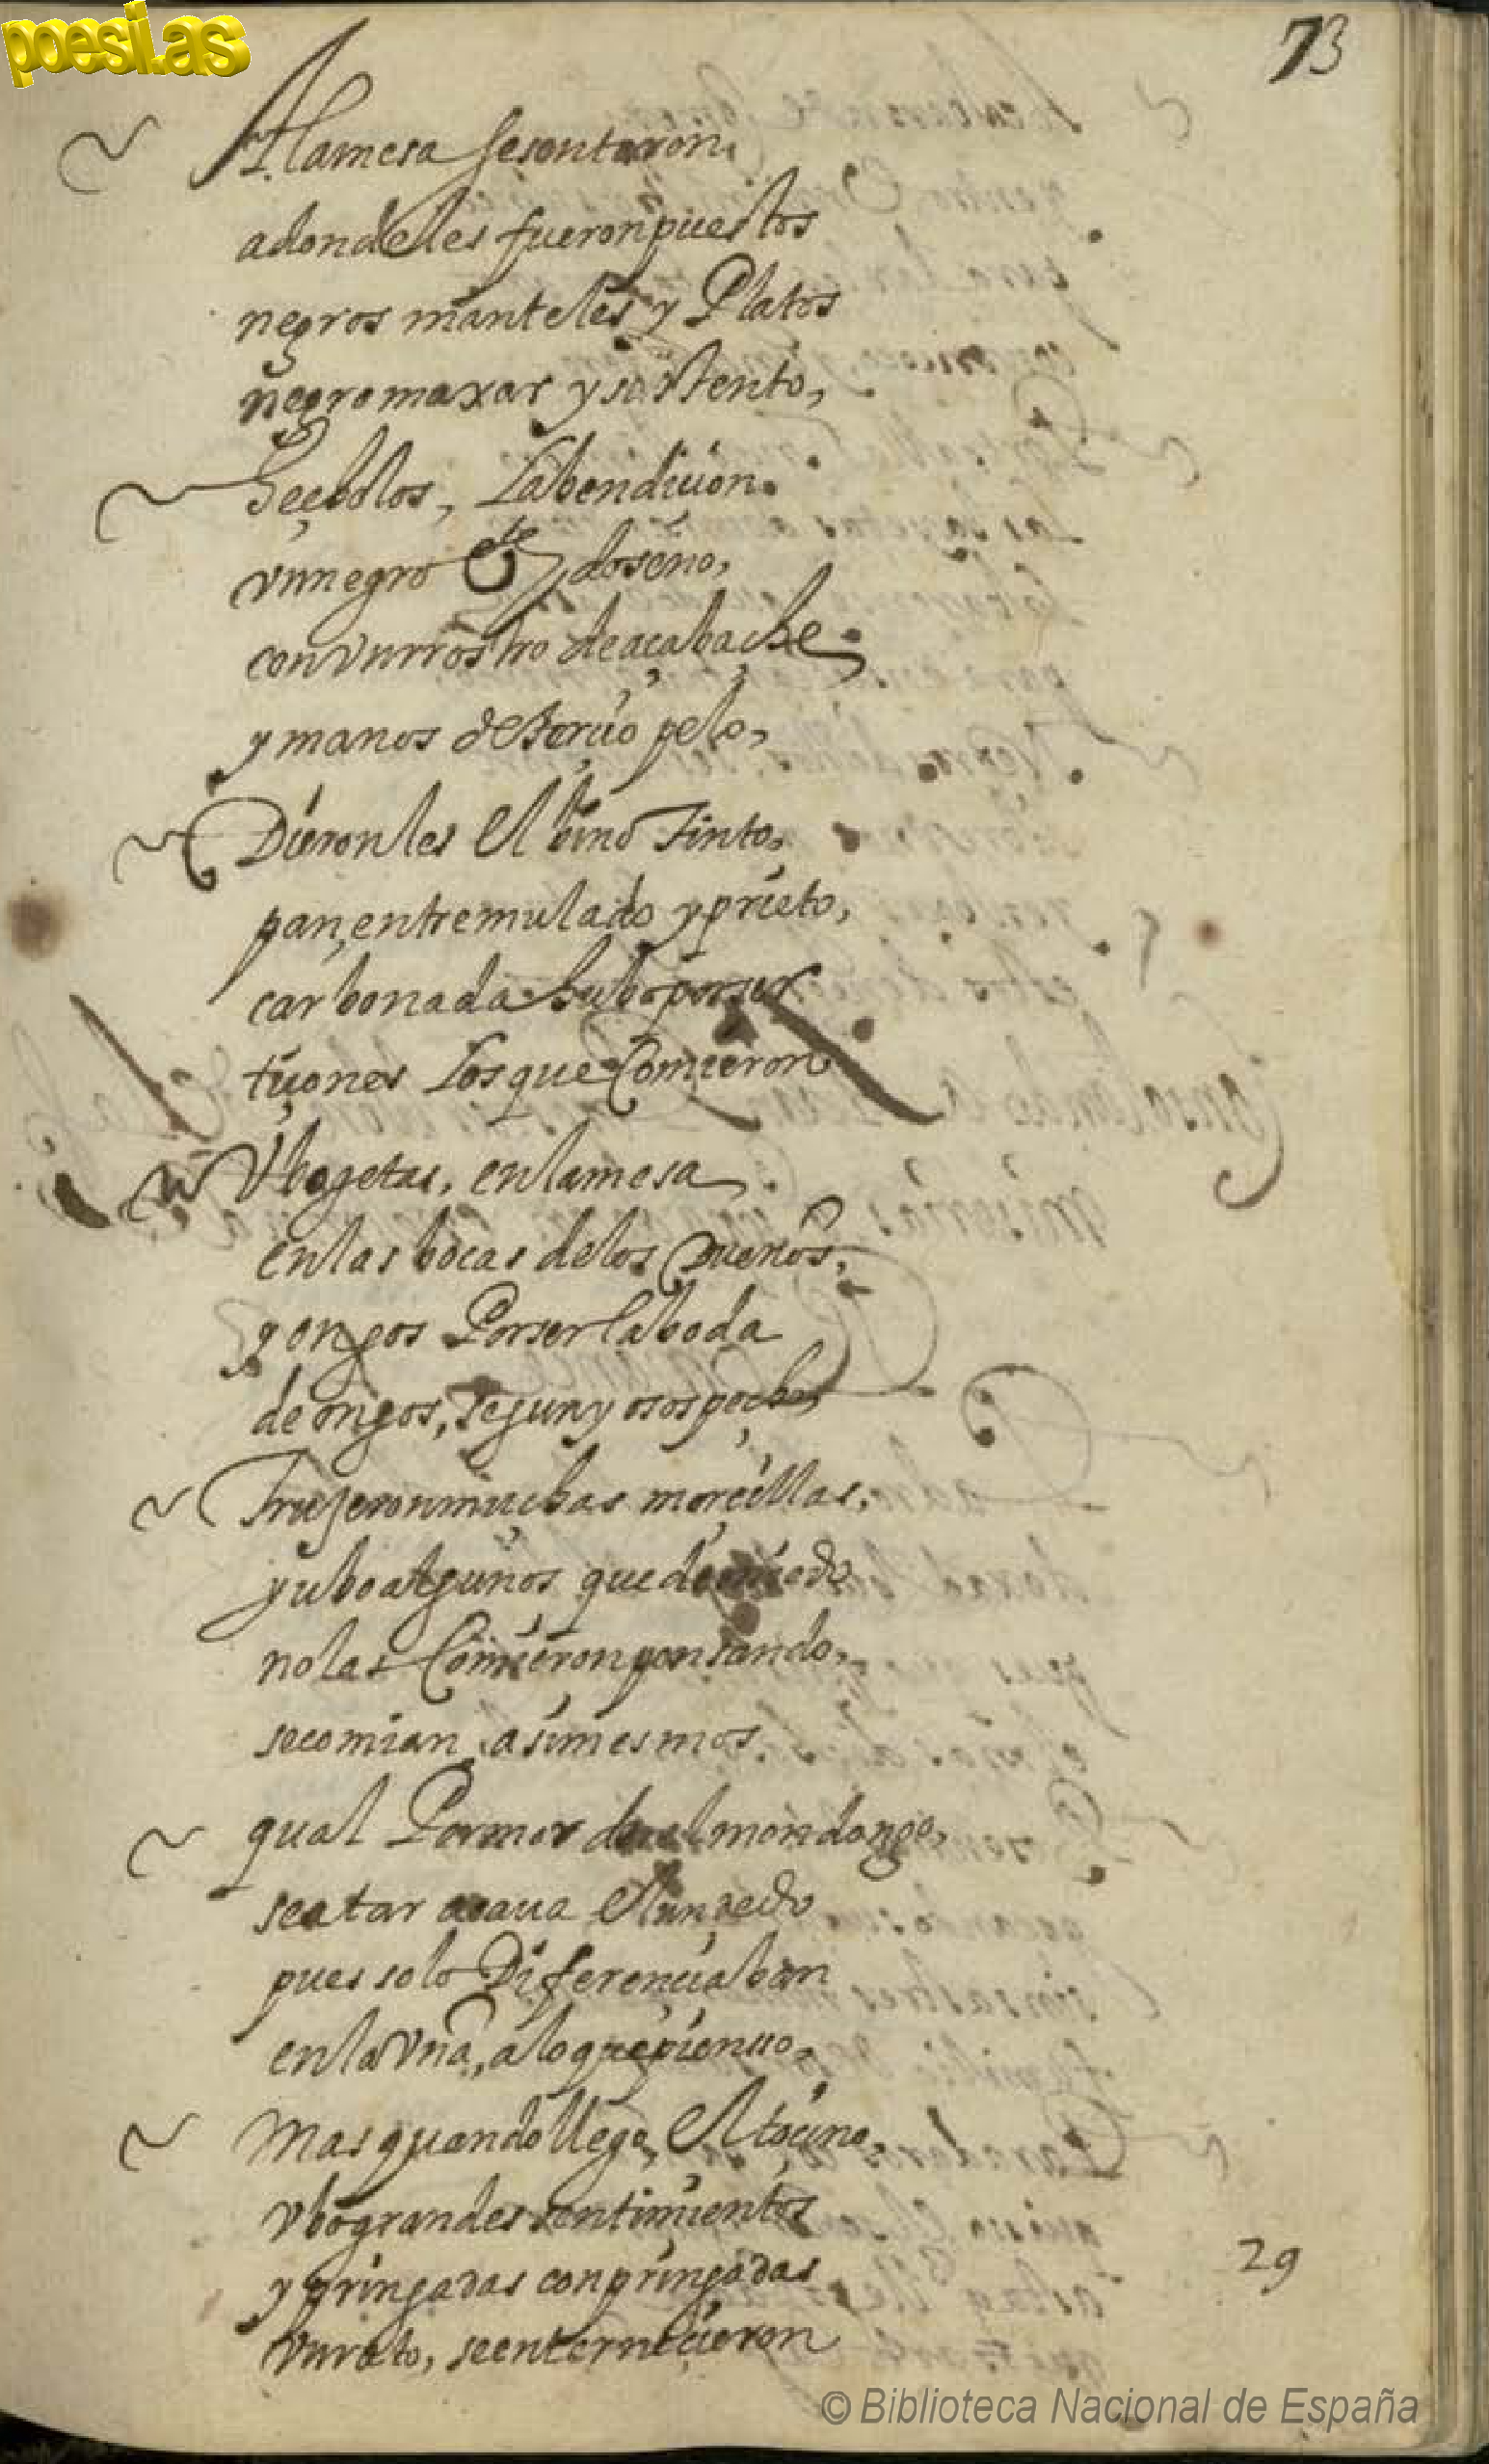 poesi.as
73
A la mesa se sentaron
adonde les fueron puestos
negros manteles y Platos
negro maxar y sustento,
hechólos, La bendicion.
vn negro doseno,
con vn rrostro de açabache
y manos de terciopelo,
Dieronles El bino Tinto,
pan, entremulado y prieto,
carbonada hubo por ser
tiçones Los que Comieron
Vbo jetas, en la mesa
en las bocas de los Dueños,
y ongos Por ser la boda
de ongos, segun yo sospecho,
Trujeron muchas morcillas,
y ubo algunos que de miedo
no las Comieron pensando,
se comian a si mesmos
qual Por mor del mondongo,
se atar acaua El un dedo
pues solo Diferenciaban
en la Vña, a lo que pienso,
Mas quando llego, El tocino,
vbo grandes sentimientos
y pringadas con pringadas
vn rato, se enternecieron
29
© Biblioteca Nacional de España